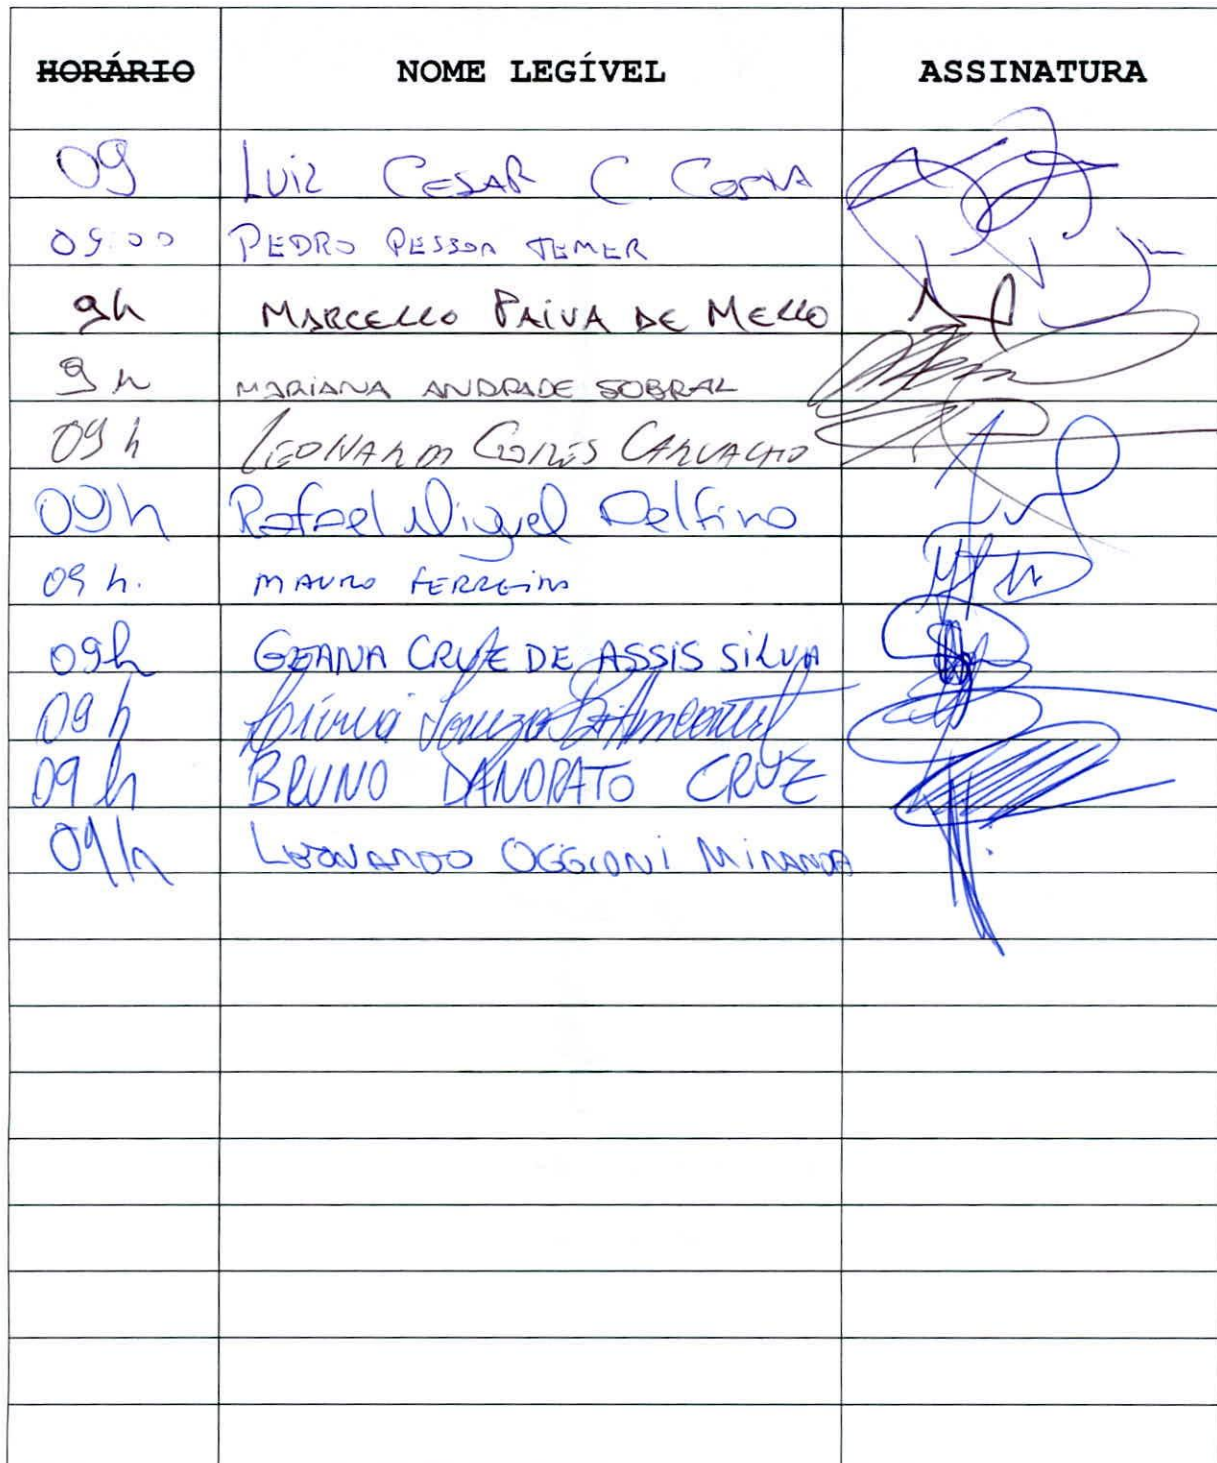 HORÁRIO NOME LEGÍVEL ASSINATURA
09 LUIZ CESAR C. COSTA
09:00 PEDRO PESSOA TEMER
9h MARCELLO PAIVA DE MELLO
9h MARIANA ANDRADE SOBRAL
09h LEONARDO GOMES CARVALHO
09h Rafael Miguel Delfino
09h. MAURO FERREIRA
09h GEANA CRUZ DE ASSIS SILVA
09h Souza Bittencourt
09h BRUNO DANORATO CRUZ
09h LEONARDO OGGIONI MIRANDA